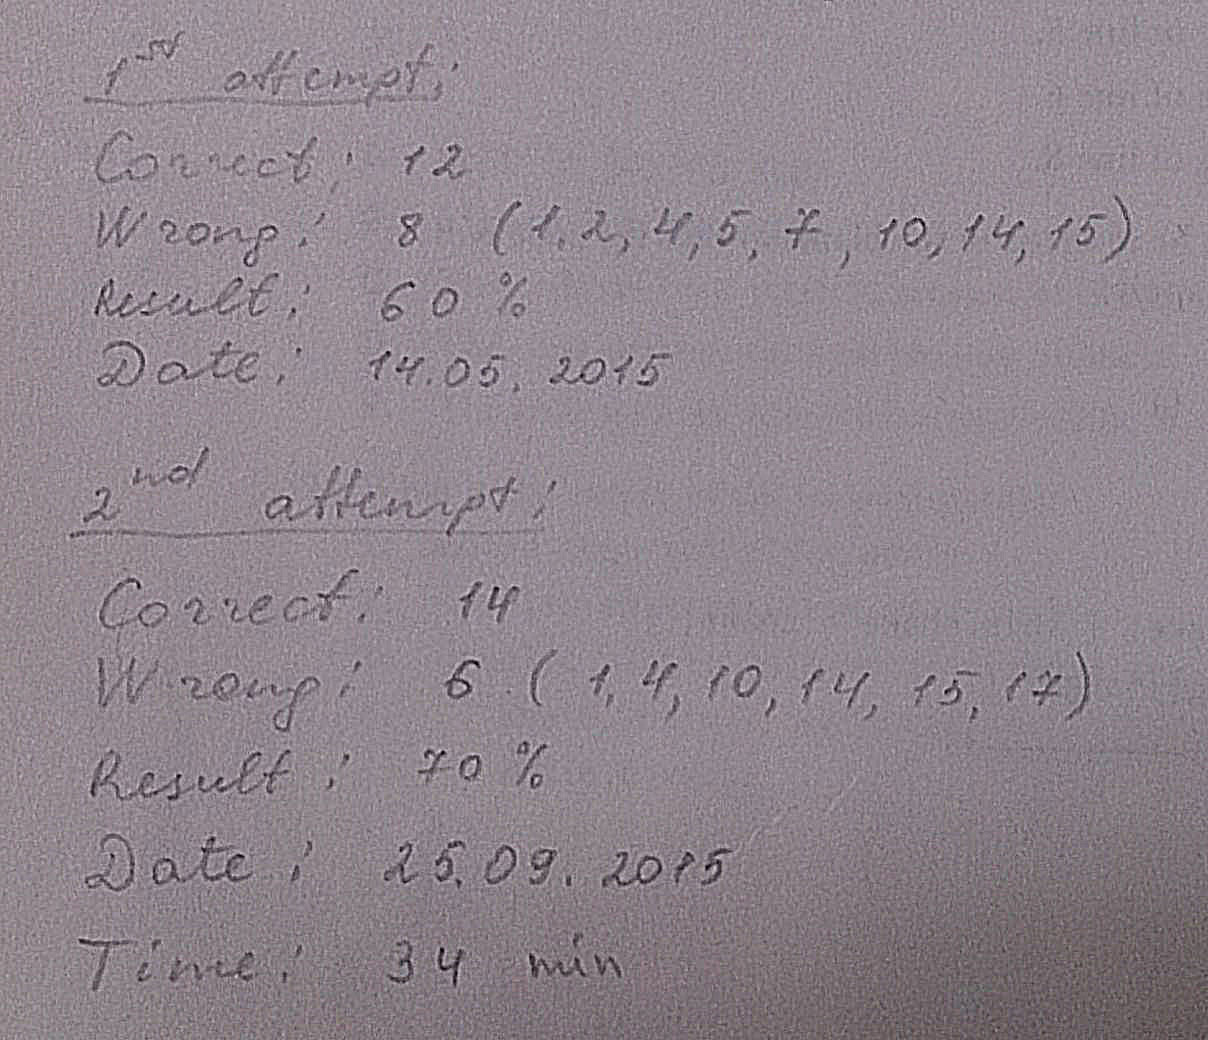 1st attempt:
Correct: 12
Wrong: 8 (1, 2, 4, 5, 7, 10, 14, 15)
Result: 60 %
Date: 14.05.2015
2nd attempt:
Correct: 14
Wrong: 6 (1, 4, 10, 14, 15, 17)
Result: 70 %
Date: 25.09.2015
Time: 34 min